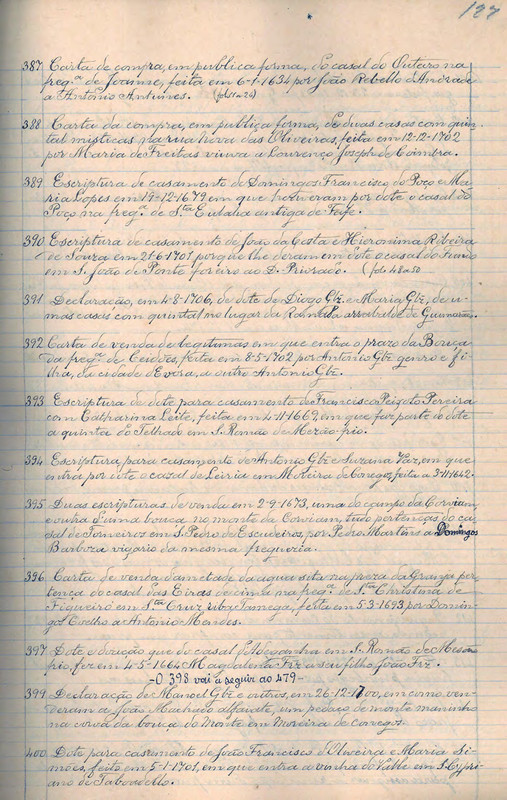 127
387 Carta de compra, em publica forma, do casal do Outeiro na
freg.ª de Joanne, feita em 6-1-1634 por João Rebello d'Andrade
a Antonio Antunes. (fols 1 a 26)
388 Carta da compra, em publica forma, de duas casas com quin-
tal misticas na rua Nova das Oliveiras, feita em 12-12-1702
por Maria de Freitas viuva a Lourenço Joseph de Coimbra.
389 Escriptura de casamento de Domingos Francisco do Poço e Ma-
ria Lopes em 19-12-1679 em que houveram por dote o casal do
Poço na freg.ª de Sta Eulalia antiga de Fafe.
390 Escriptura de casamento de João da Costa e Hieronima Ribeira
de Souza em 21-6-1701 porque lhe deram em dote o casal do
em S. João de Ponte foreiro ao D. Priorado. (fols 48 a 50
391 Declaração, em 4-8-1706, de dote de Diogo Glz. e Maria Glz, de u-
mas casas com quintal no lugar da Ramada arrabalde de Guimarães.
392 Carta de venda de legitimas em que entra o prazo da Bouça
da freg.ª de Ceidões, feita em 8-5-1702 por Antonio Glz genro e fi-
lha, da cidade d'Evora, a outro Antonio Glz.
393 Escriptura de dote para casamento de Francisco Peixoto Pereira
com Catharina Leite, feita em 4-11-1669, em que faz parte do dote
a quinta do Telhado em S. Romão de Mezão-frio.
394 Escriptura para casamento de Antonio Glz e Suzana Vaz, em que
entra por dote o casal de Leiria em Moreira de Conegos, feita a 3-11-1642.
395 Duas escripturas de venda em 2-9-1673, uma do campo da Corviam,
e outra d'uma bouça no monte da Corviam, tudo pertenças do ca-
sal de Torneiros em S. Pedro de Escudeiros, por Pedro Martins a Domingos
Barboza vigario da mesma freguezia.
396 Carta de venda d'ametade da agua sita na preza da Granja per-
tença do casal das Eiras de cima na freg.ª de Sta Christina de
Figueiró em Sta Cruz riba Tamega, feita em 5-3-1693 por Domin-
gos Coelho a Antonio Mendes.
397 Dote e doação que do casal d'Adeganha em S. Romão de Mesão
frio, fez em 4-5-1664 Magdalena Frz a seu filho João Frz.
-O 398 vai a seguir ao 479-
399 Declaração de Manoel Glz e outros, em 26-12-1700, em como ven-
deram a João Machado alfaiate, um pedaço de monte maninho
na cova da bouça do Monte em Moreira de Conegos.
400 Dote para casamento de João Francisco d'Oliveira e Maria Si-
mões, feito em 5-1-1701, em que entra a vinha do Valle em S. Cypri-
ano de Taboadello.